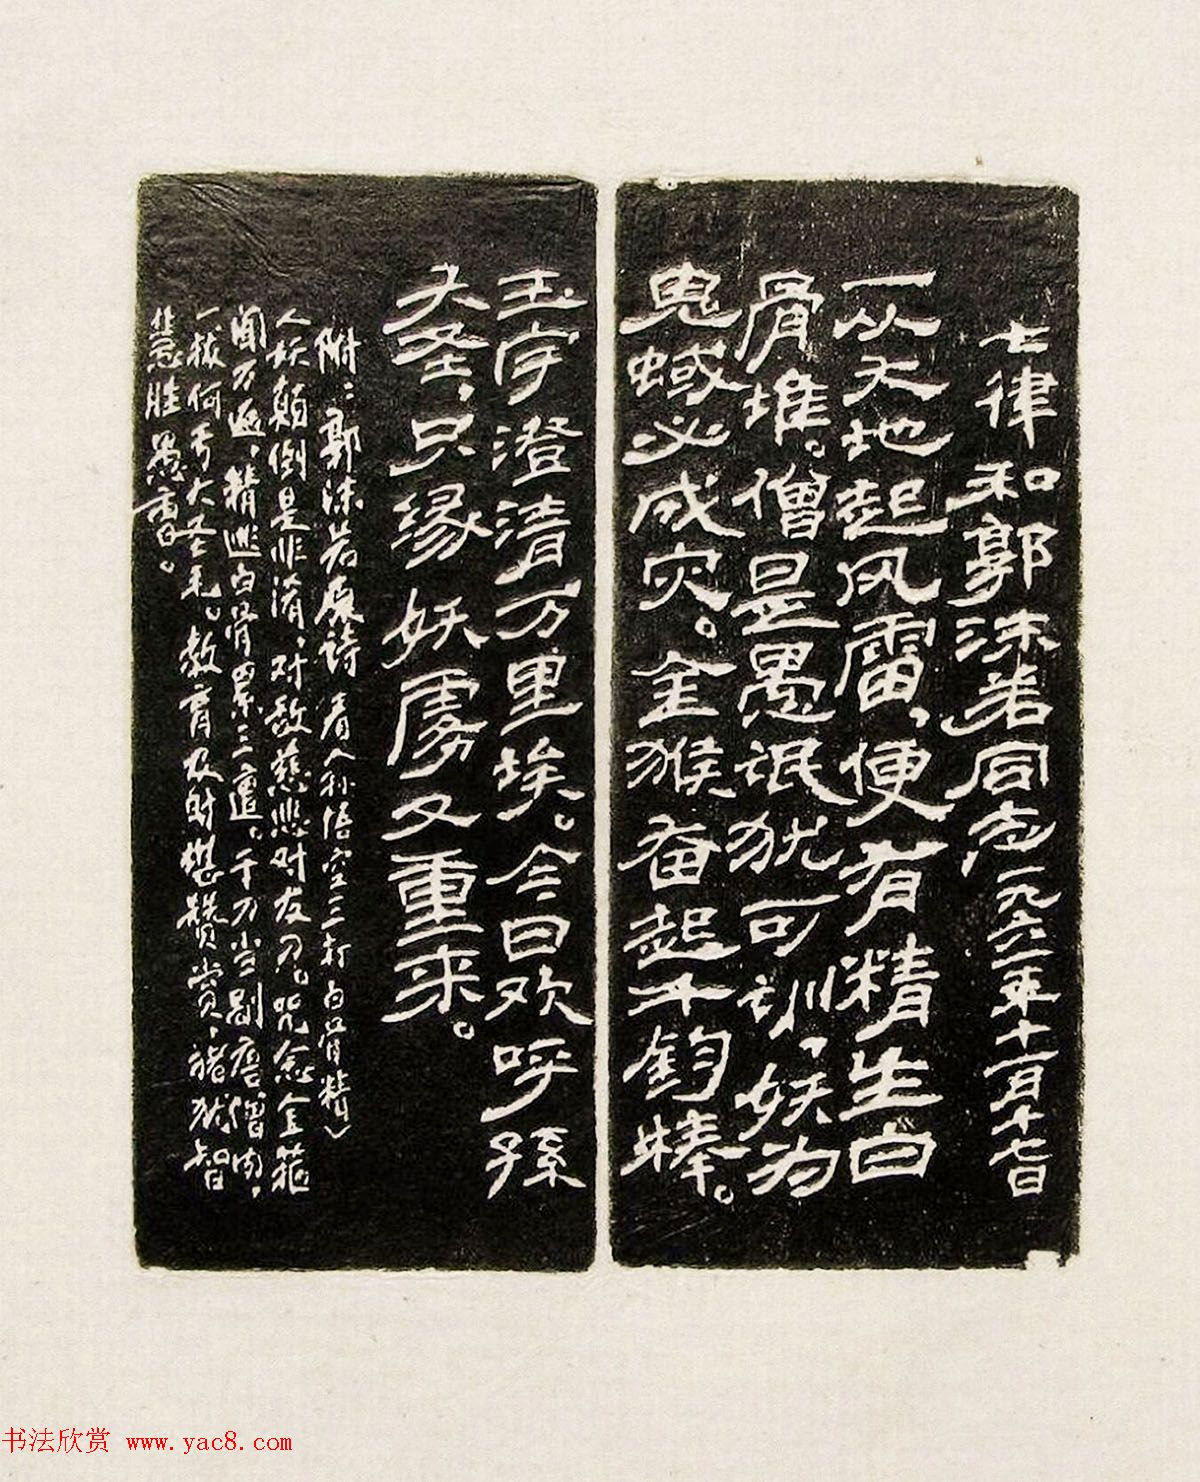 七律 和郭沫若同志 一九六一年十一月十七日
一从大地起风雷，便有精生白
骨堆。僧是愚氓犹可训，妖为
鬼蜮必成灾。金猴奋起千钧棒，
玉宇澄清万里埃。今日欢呼孫
大圣，只缘妖雾又重来。
附：郭沫若原诗 看《孙悟空三打白骨精》
人妖颠倒是非淆，对敌慈悲对友刁。咒念金箍
闻万遍，精逃白骨累三遭。千刀当剐唐僧肉，
一拔何亏大圣毛。教育及时堪赞赏，猪犹智
慧胜愚曹。
书法欣赏 www.yac8.com